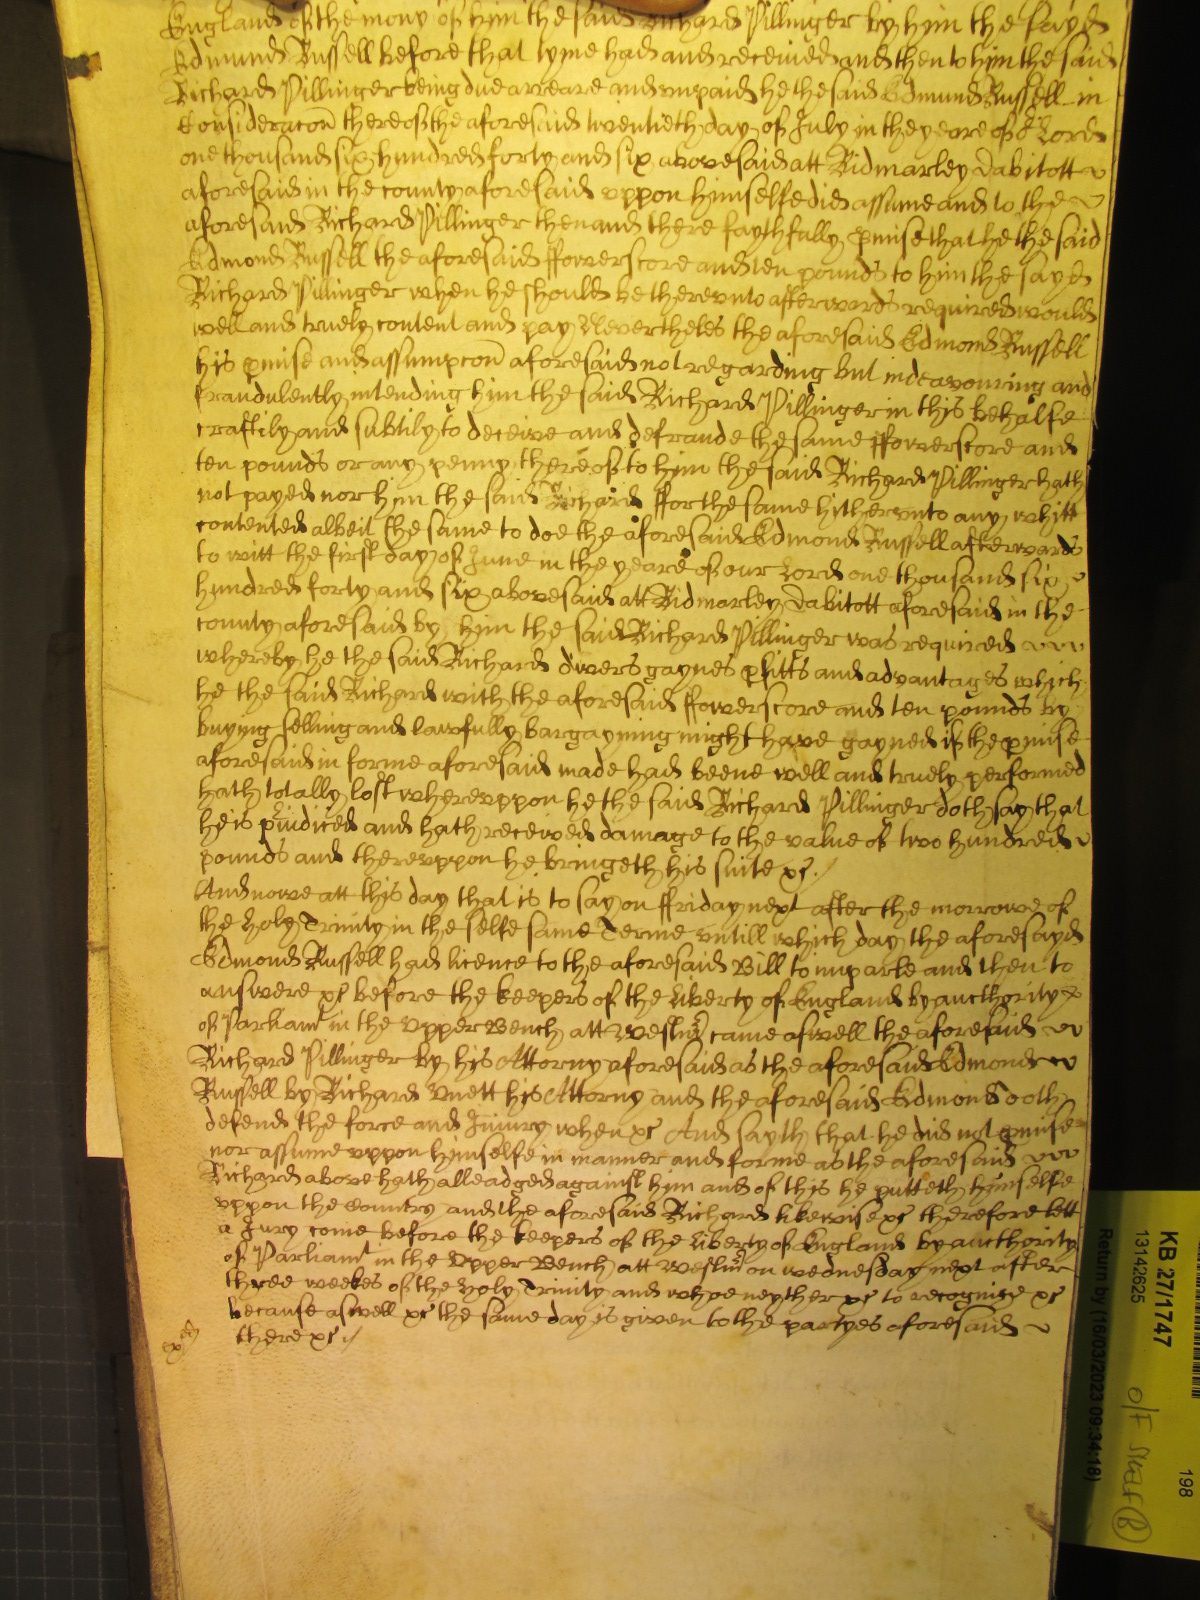 England of the mony of him the said Richard Pillinger by him the sayd
Edmund Russell before that tyme had and received and then to him the said
Richard Pillinger being due arreare and unpaid he the said Edmund Russell in
Consideracon thereof the aforesaid twentieth day of July in the yeare of or Lord
one thousand six hundred forty and six abovesaid att Ridmarley Dabitott
aforesaid in the county aforesaid uppon himselfe did assume and to the
aforesaid Richard Pillinger then and there faythfully pmise that he the said
Edmond Russell the aforesaid ffowerscore and ten pounds to him the sayd
Richard Pillinger when he should be thereunto afterwards required would
well and truely content and pay Nevertheles the aforesaid Edmond Russell
his pmise and assumpcon aforesaid not regarding but indeavouring and
fraudulently intending him the said Richard Pillinger in this behalfe
craftily and subtily to deceive and defraude the same ffowerscore and
ten pounds or any penny thereof to him the said Richard Pillinger hath
not payed nor him the said Richard ffor the same hitherunto any whitt
contented albeit the same to doe the aforesaid Edmond Russell afterwards
to witt the first day of June in the yeare of our Lord one thousand six
hundred forty and six abovesaid att Ridmarley Dabitott aforesaid in the
county aforesaid by him the said Richard Pillinger was required
whereby he the said Richard divers gaynes pfitts and advantages which
he the said Richard with the aforesaid ffowerscore and ten pounds by
buying selling and lawfully bargayning might have gayned if the pmise
aforesaid in forme aforesaid made had beene well and truely performed
hath totally lost whereuppon he the said Richard Pillinger doth say that
he is piudiced and hath received damage to the value of two hundred
pounds and thereuppon he bringeth his suite &c./
And nowe att this day that is to say on ffriday next after the morrowe of
the holy Trinity in the selfe same Terme untill which day the aforesayd
Edmond Russell had licence to the aforesaid Bill to imparle and then to
answere &c before the keepers of the Liberty of England by aucthority
of Parliamt in the Upper Bench att Westmr came aswell the aforesaid
Richard Pillinger by his Attorny aforesaid as the aforesaid Edmond
Russell by Richard Unett his Attorny and the aforesaid Edmond doth
defend the force and Iniury when &c And sayth that he did not pmise
nor assume uppon himselfe in manner and forme as the aforesaid
Richard above hath alleadged against him and of this he putteth himselfe
uppon the Country and the aforesaid Richard likewise &c therefore lett
a Jury come before the keepers of the Liberty of England by aucthority
of Parliamt in the Upper Bench att Westmr on wednesday next after
three weekes of the holy Trinity and whoe neyther &c to recognise &c
because aswell &c the same day is given to the partyes aforesaid
there &c./
KB 27/1747
13142625
Return by (16/03/2023 09:34:18)
198